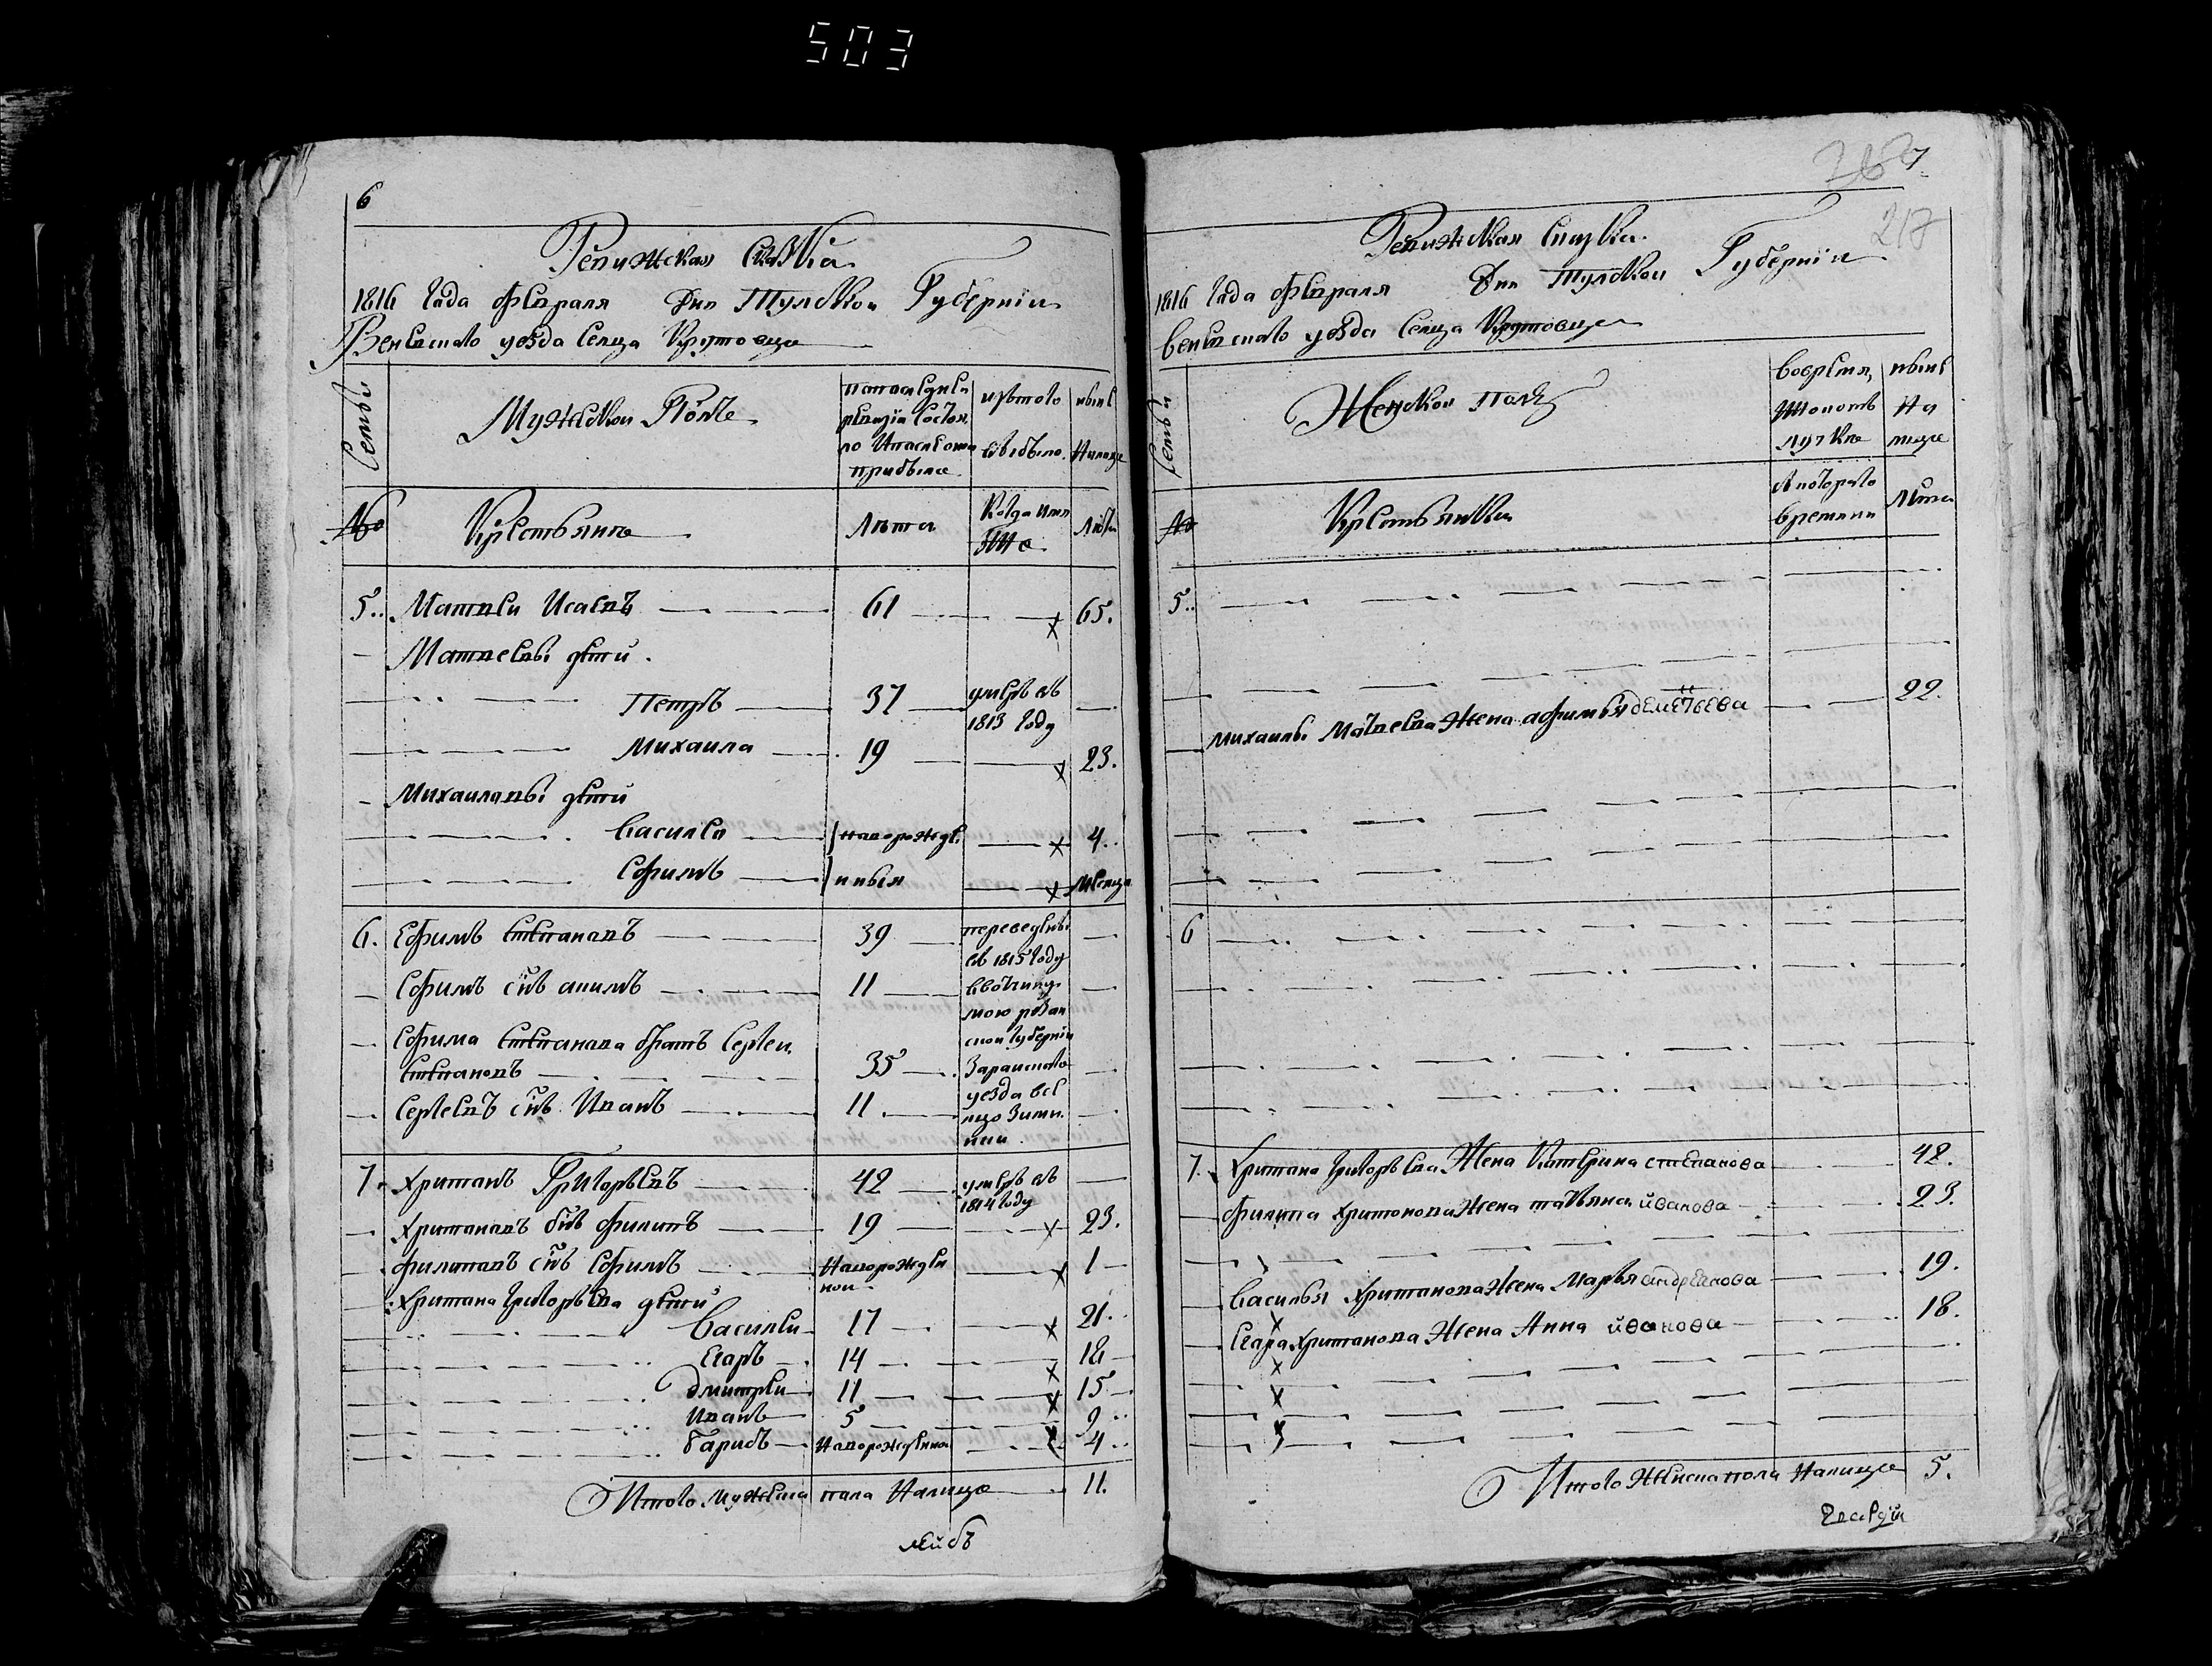 503
6
Ревижская Сказка
1816 Года февраля Дня Тулской Губернии
Веневскаго уезда селца Крутовца
Семьи
Мужескои Полъ
По последней ревизии состояло и после оной прибыло
Изъ того выбыло
Ныне на лицо
№
Крестьяне
Лета
Когда имянно
Лета
5. Матвеи Исаевъ 61 65.
Матвевы дети.
Петръ 37 умеръ въ 1813 году
Михаила 19 23.
Михаиловы дети
Василеи новорожде 4.
Ефимъ нныя месяца
6. Ефимъ степановъ 39 переведены
въ 1815 году
Ефимъ снъ акимъ 11 ввотчину
мою резан
ской губернии
Ефима степанова братъ Сергеи
степановъ 35 Зараискаго
уезда
Сергевъ снъ Иванъ 11.
7. Харитонъ Григорьевъ 42 умеръ въ
1814 году
Харитоновъ снъ филипъ 19 23.
филиповъ снъ Ефимъ новорожден 1
ной
Харитона григорьева дети
Василеи 17 21.
Егаръ 14 18
дмитреи 11 15
Иванъ 5 9
Барисъ Новорожденной 4
Итого мужеска пола Налицо 11.
7
217
Ревижская Сказка
1816 Года февраля Дня Тулской Губернии
веневскаго уезда Селца Крутовца
Семьи
Женскои полъ
Во временной отлучке
Ныне на лицо
№
Крестьянки
С котораго времени
Лета
5.
михаилы Матвева жена афимья дементьева 22.
6
7. Харитона григорьева Жена Катерина степанова 42.
филипа Харитонова Жена татьяна иванова 23.
Василья Харитонова жена Марья андреянова 19.
Егара Харитонова Жена Анна иванова 18.
Итого женска пола Налицо 5.